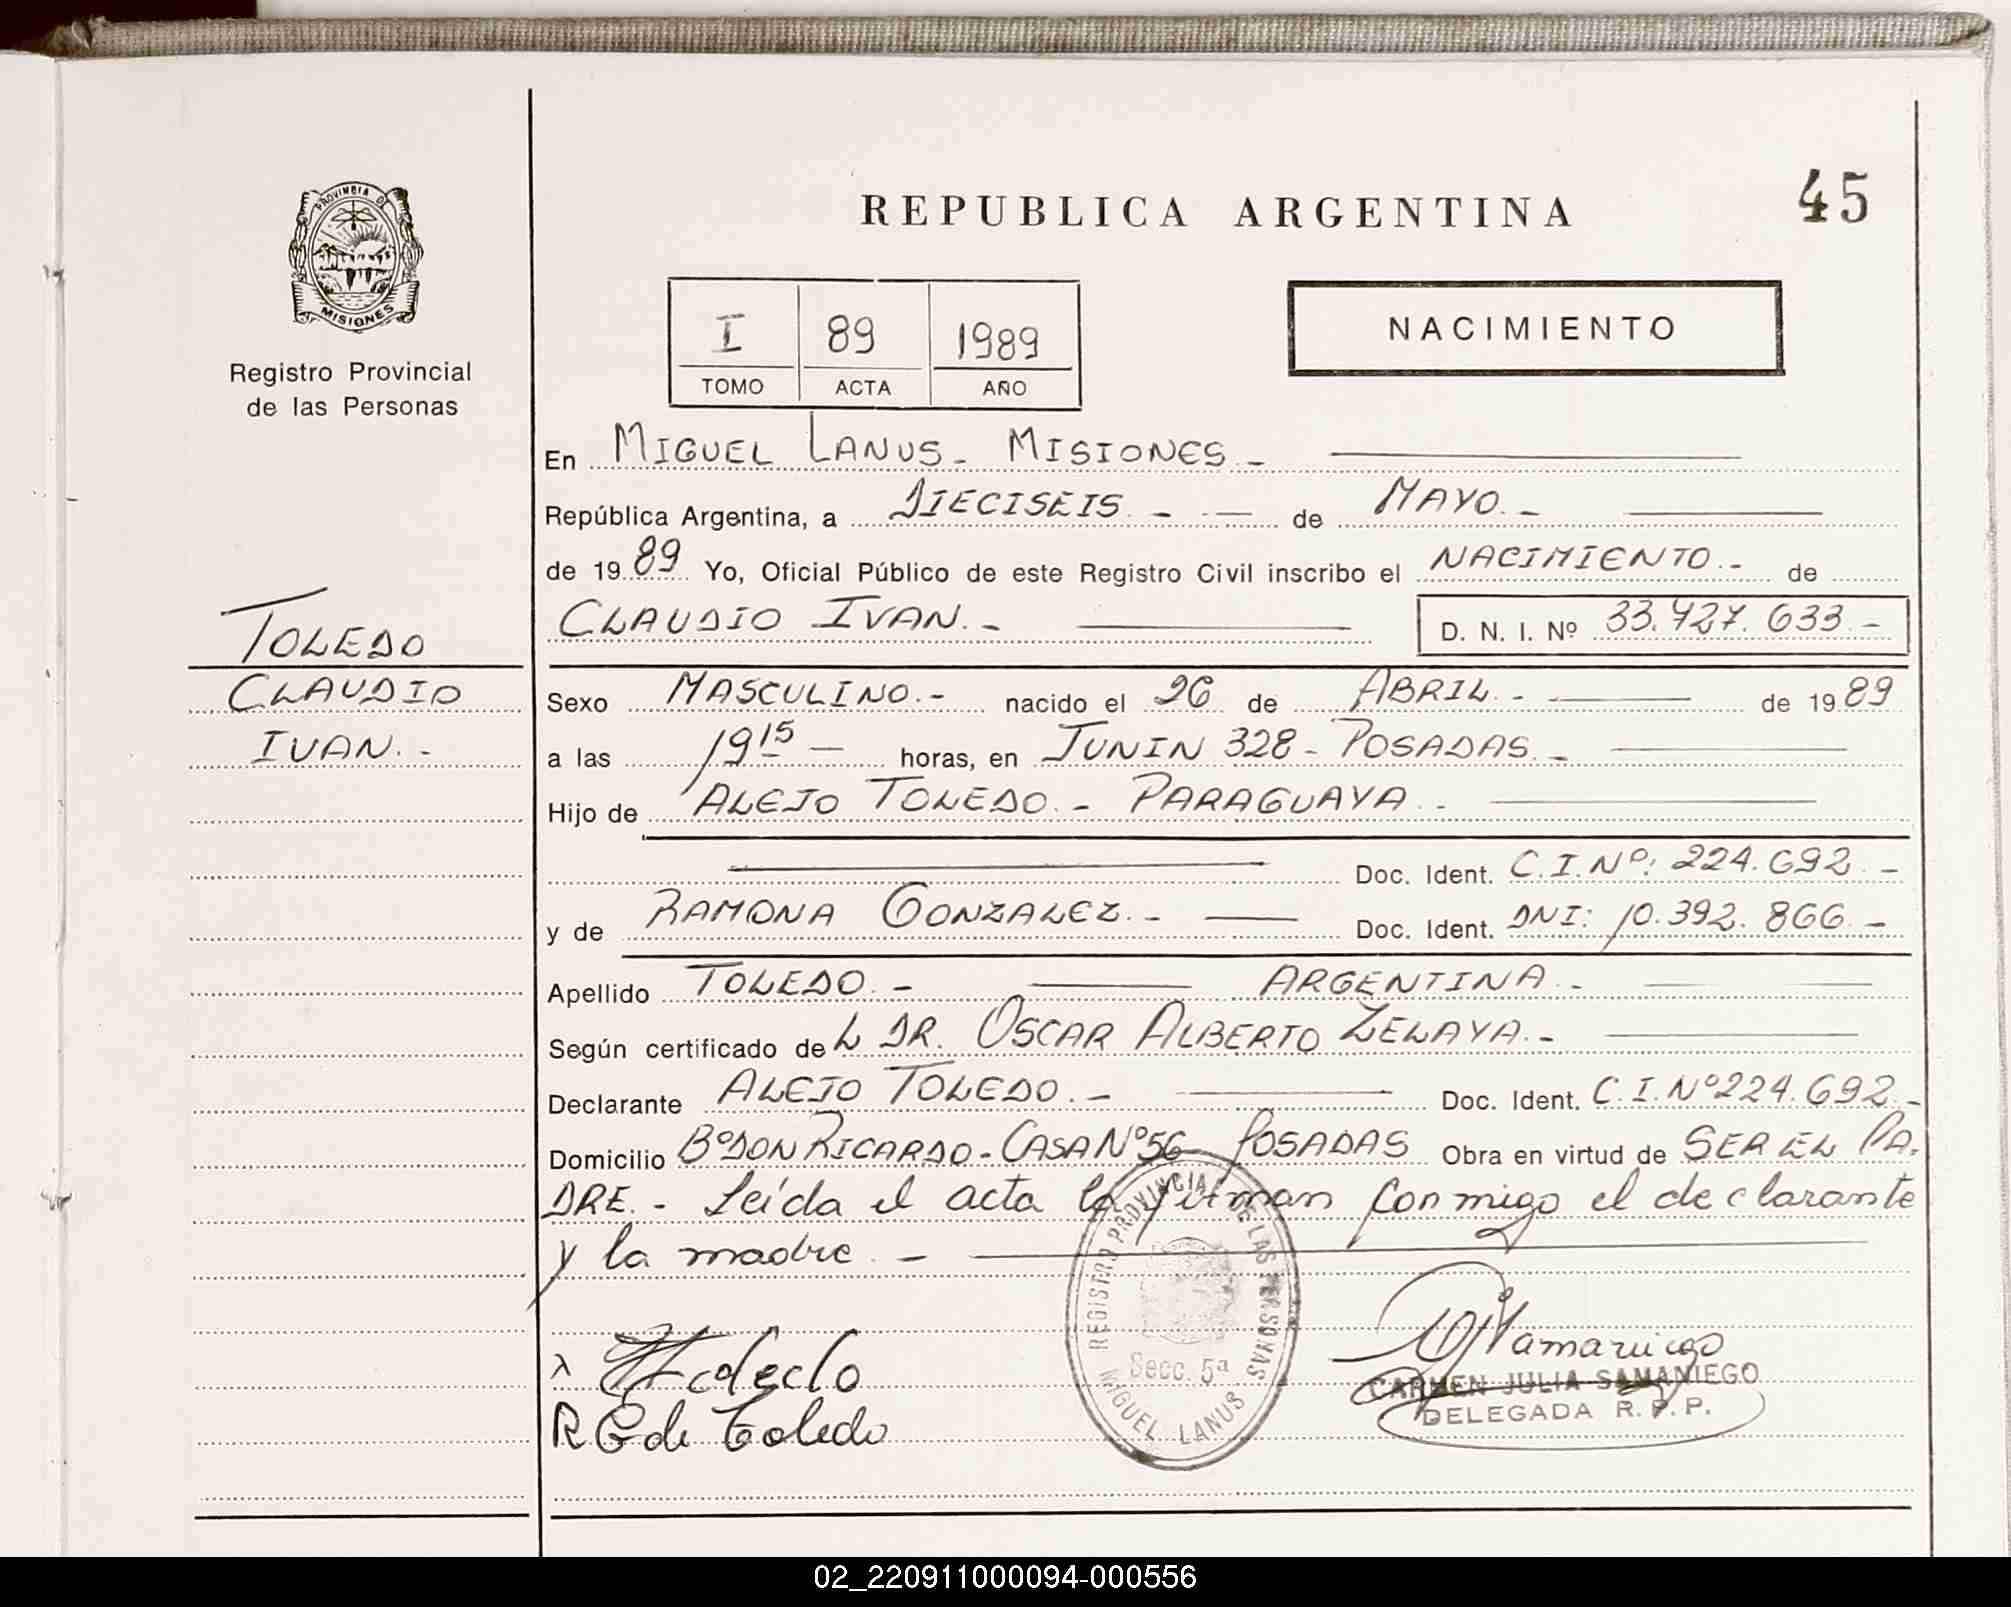 REPUBLICA ARGENTINA
45
PROVINCIA DE
MISIONES
Registro Provincial
de las Personas
I 89 1989
TOMO ACTA AÑO
NACIMIENTO
En MIGUEL LANUS - MISIONES -
República Argentina, a DIECISEIS - - de MAYO. -
de 1989 Yo, Oficial Público de este Registro Civil inscribo el NACIMIENTO.- de
CLAUDIO IVAN. - D. N. I. Nº 33.427.633.-
TOLEDO
CLAUDIO
IVAN. -
Sexo MASCULINO.- nacido el 26 de ABRIL.- de 1989
a las 19 15 - horas, en JUNIN 328 - POSADAS. -
Hijo de ALEJO TOLEDO. - PARAGUAYA. -
Doc. Ident. C.I.Nº: 224.692. -
y de RAMONA GONZALEZ. - Doc. Ident. DNI: 10.392.866. -
Apellido TOLEDO. - ARGENTINA. -
Según certificado deL DR. OSCAR ALBERTO ZELAYA. -
Declarante ALEJO TOLEDO. - Doc. Ident. C.I.Nº 224.692. -
Domicilio Bº DON RICARDO - CASA Nº 56 POSADAS Obra en virtud de SER EL PA-
DRE. - Leída el acta la firman conmigo el declarante
y la madre. -
REGISTRO PROVINCIAL DE LAS PERSONAS
Secc. 5ª
MIGUEL LANUS
Toledo
R G de Toledo
Samaniego
CARMEN JULIA SAMANIEGO
DELEGADA R. P. P.
02_220911000094-000556